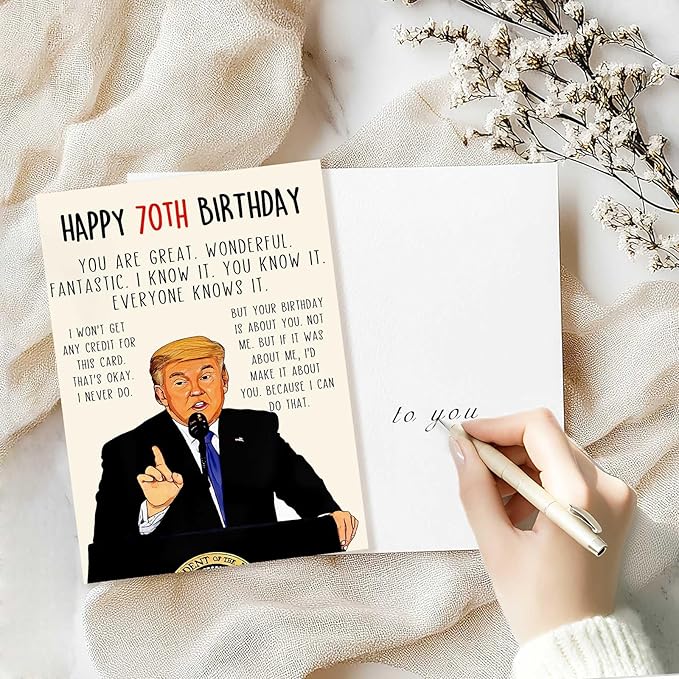 HAPPY 70TH BIRTHDAY
YOU ARE GREAT. WONDERFUL.
FANTASTIC. I KNOW IT. YOU KNOW IT.
EVERYONE KNOWS IT.
I WON'T GET
ANY CREDIT FOR
THIS CARD.
THAT'S OKAY.
I NEVER DO.
BUT YOUR BIRTHDAY
IS ABOUT YOU. NOT
ME. BUT IF IT WAS
ABOUT ME, I'D
MAKE IT ABOUT
YOU. BECAUSE I CAN
DO THAT.
OF THE
to you